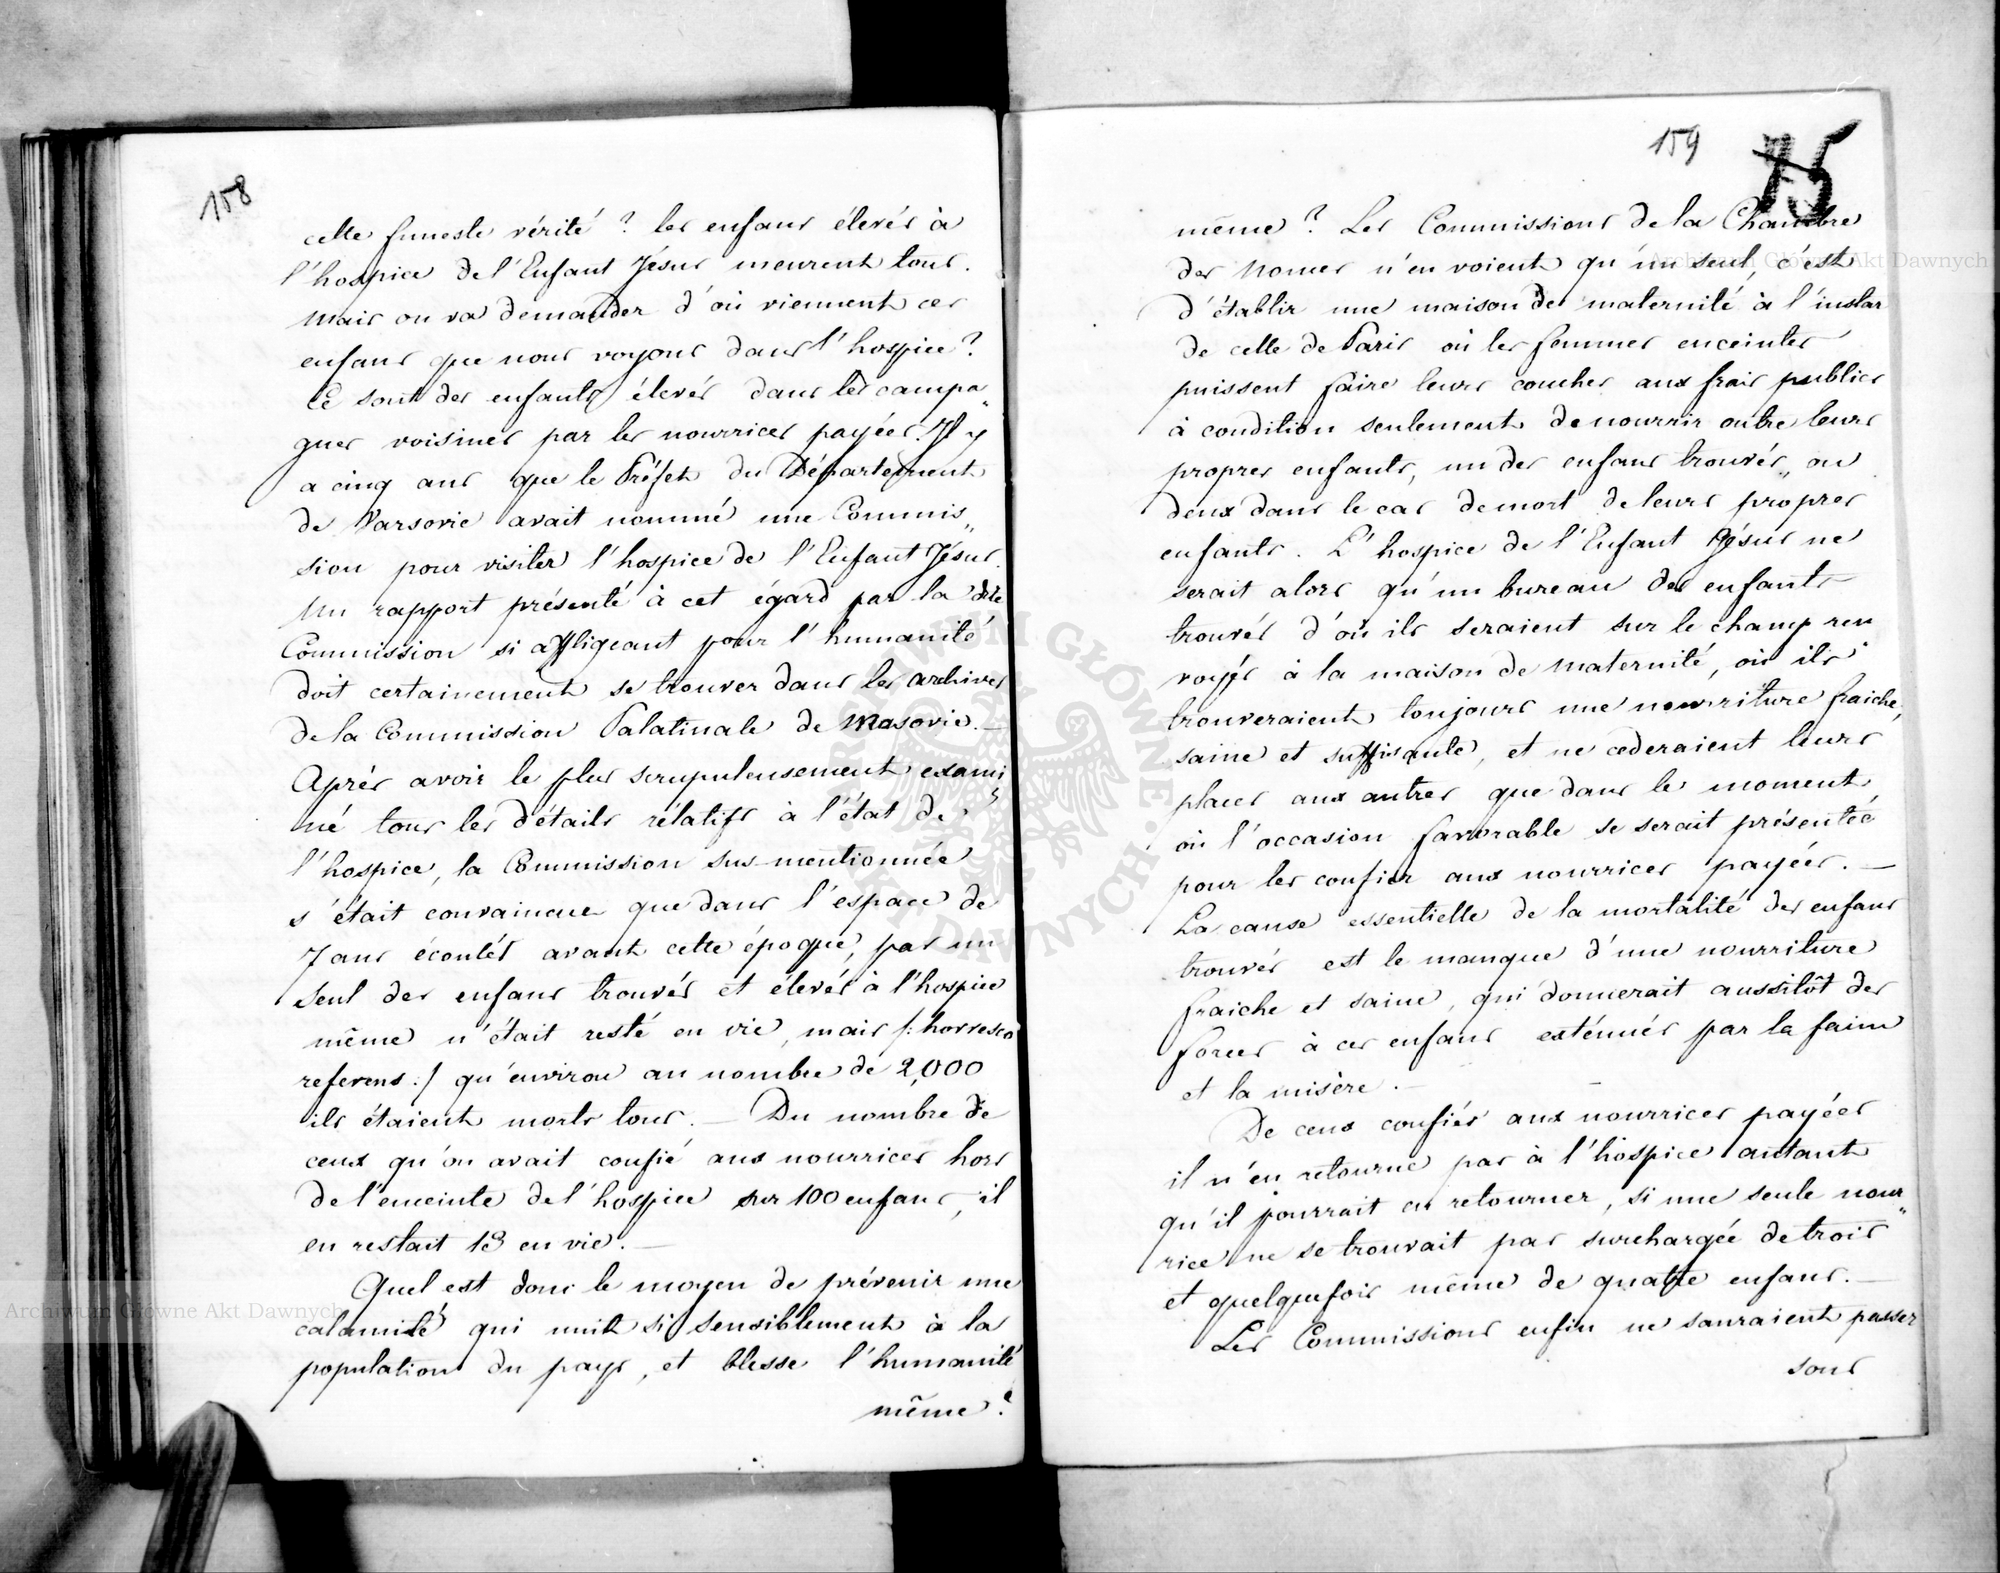 158
cette funeste vérité ? les enfans élevés à
l'hospice de l'Enfant Jésus meurent tous.
Mais on va demander d'où viennent ces
enfans que nous voyons dans l'hospice ?
Ce sont des enfants élevés dans les campa„
gnes voisines par les nourrices payées. Il y
a cinq ans que le Préfet du Département
de Varsovie avait nommé une Commis„
sion pour visiter l'hospice de l'Enfant Jésus.
Un rapport présenté à cet égard par la dite
Commission si affligeant pour l'humanité
doit certainement se trouver dans les archives
de la Commission Palatinale de Masovie. —
Après avoir le plus scrupuleusement exami„
né tous les détails rélatifs à l'état de
l'hospice, la Commission sus-mentionnée
s'était convaincue que dans l'espace de
7 ans écoulés avant cette époque, pas un
seul des enfans trouvés et élevés à l'hospice
même n'était resté en vie, mais /: horresco
referens :/ qu'environ au nombre de 2,000
ils étaient morts tous. — Du nombre de
ceux qu'on avait confié aux nourrices hors
de l'enceinte de l'hospice sur 100 enfans, il
en restait 13 en vie. —
Quel est donc le moyen de prévenir une
calamité qui nuit si sensiblement à la
population du pays, et blesse l'humanité
même ?
159
75
même ? Les Commissions de la Chambre
des Nonces n'en voient qu'un seul, c'est
d'établir une maison de maternité à l'instar
de celle de Paris où les femmes enceintes
puissent faire leurs couches aux frais publics
à condition seulement de nourrir outre leurs
propres enfants, un des enfans trouvés, ou
deux dans le cas de mort de leurs propres
enfants. L'hospice de l'Enfant Jésus ne
serait alors qu'un bureau des enfants
trouvés d'où ils seraient sur le champ ren„
voyés à la maison de maternité, où ils
trouveraient toujours une nourriture fraiche,
saine et suffisante, et ne cederaient leurs
places aux autres que dans le moment,
où l'occasion favorable se serait présentée
pour les confier aux nourrices payées. —
La cause essentielle de la mortalité des enfans
trouvés est le manque d'une nourriture
fraiche et saine, qui donnerait aussitôt des
forces à ces enfans exténués par la faim
et la misère. —
De ceux confiés aux nourrices payées
il n'en retourne pas à l'hospice autant
qu'il pourrait en retourner, si une seule nour„
rice ne se trouvait pas surchargée de trois
et quelquefois même de quatre enfans. —
Les Commissions enfin ne sauraient passer
sous
Archiwum Główne Akt Dawnych
Archiwum Główne Akt Dawnych
ARCHIWUM GŁÓWNE AKT DAWNYCH